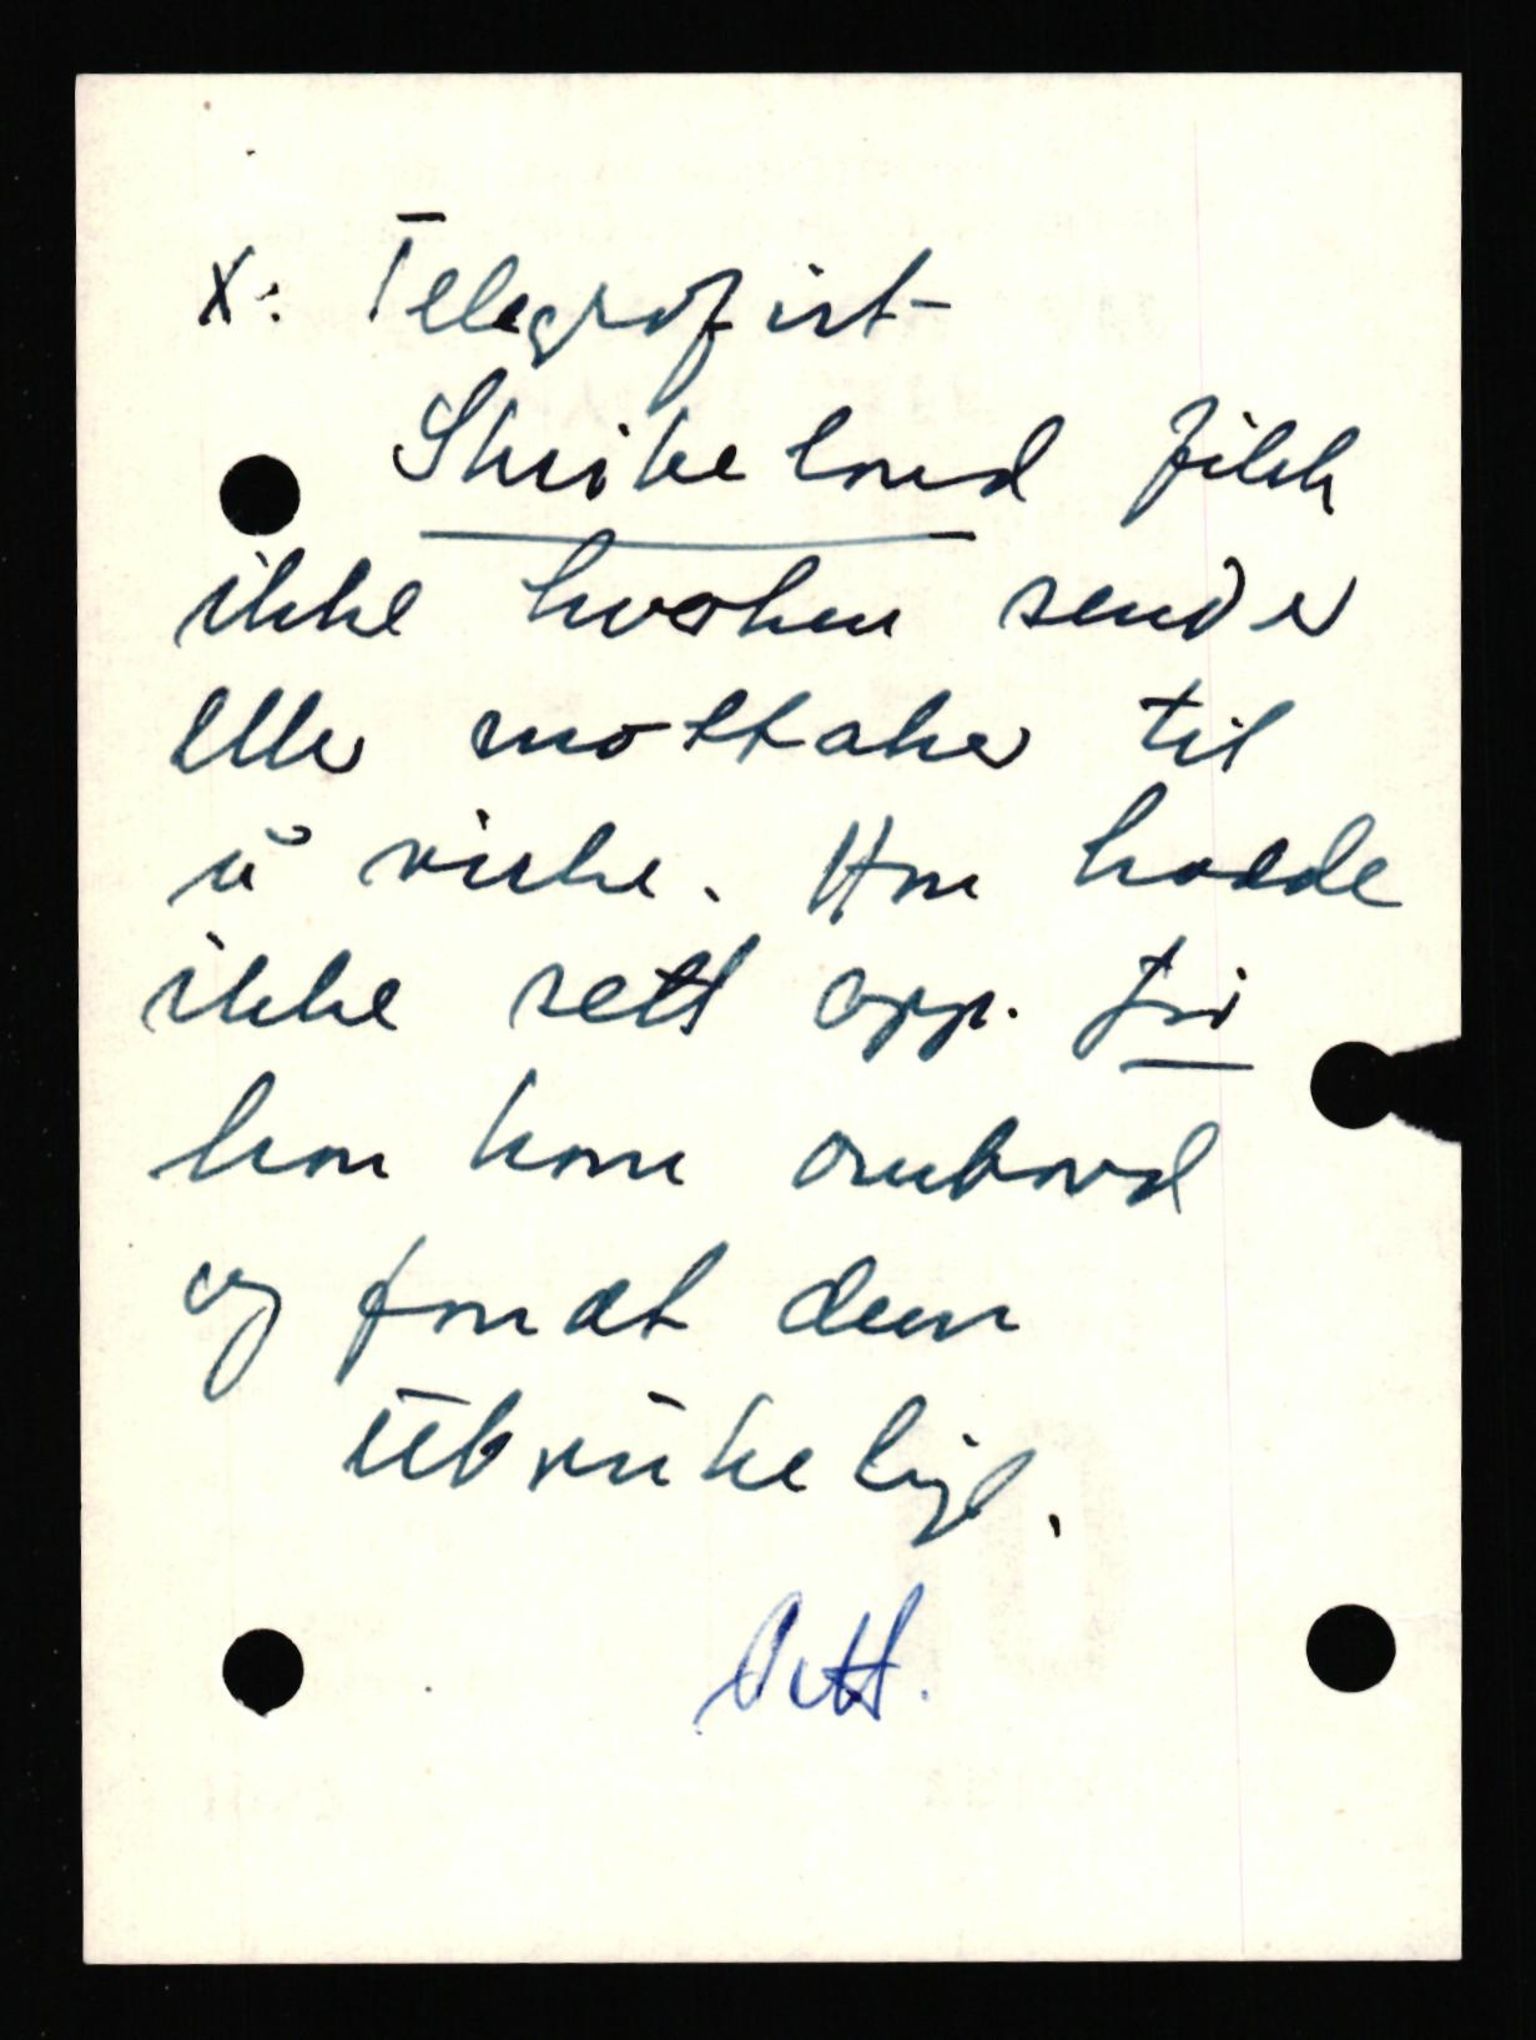 X: Telegrafist
Skrikelund fikk
ikke hverken sender
eller mottaker til
å virke. Han hadde
ikke sett opp. før
han kom ombord
og fandt dem
ubrukelige.